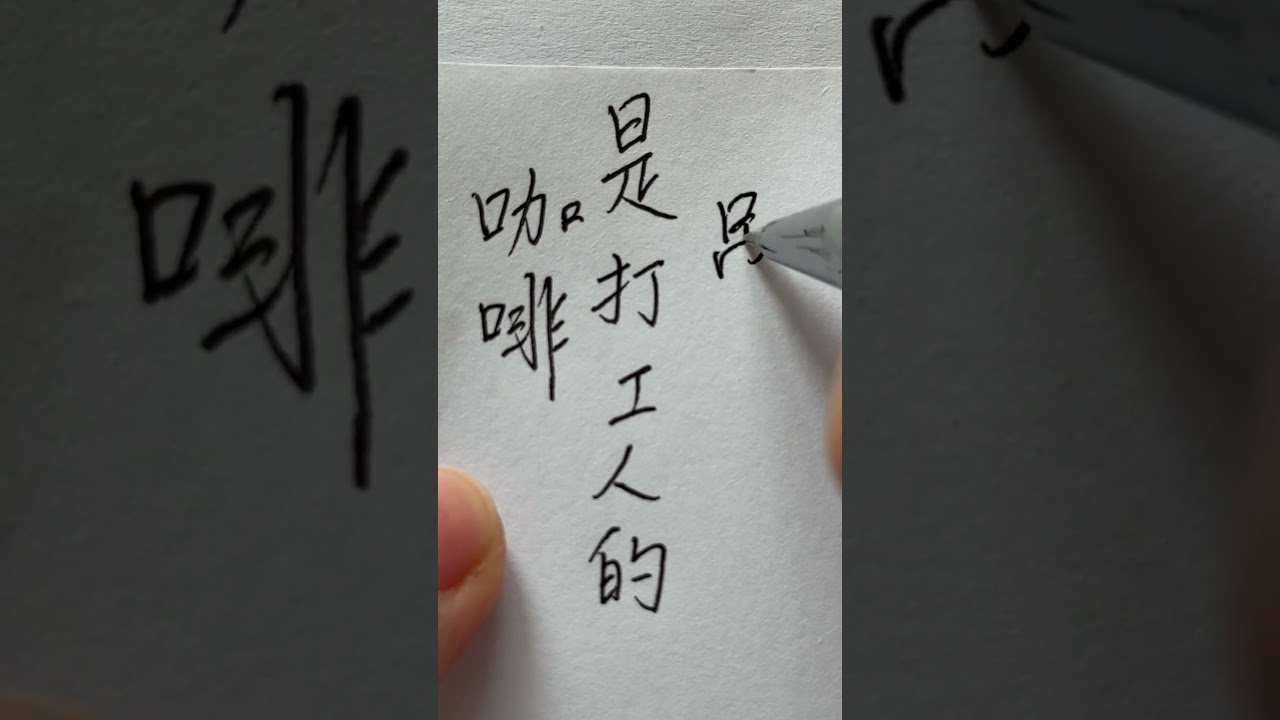 咖啡
是打工人的